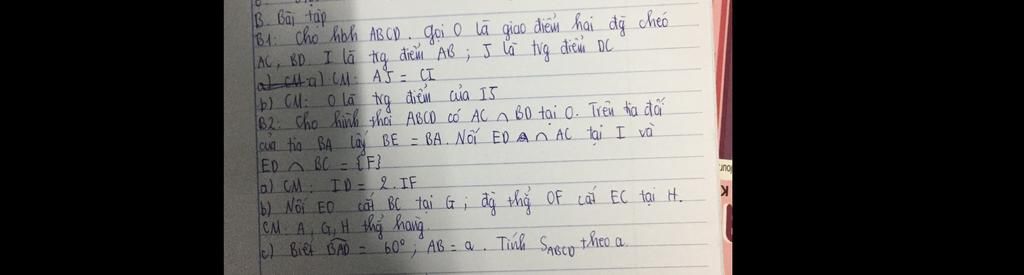 B. Bài tập
B1: Cho hbh ABCD. Gọi O là giao điểm hai đg chéo
AC, BD. I là trg điểm AB ; J là trg điểm DC
a) CM: AJ = CI
b) CM: O là trg điểm của IJ
B2: Cho hình thoi ABCD có AC ∩ BD tại O. Trên tia đối
của tia BA lấy BE = BA. Nối ED ∩ AC tại I và
ED ∩ BC = {F}
a) CM: ID = 2.IF
b) Nối EO cắt BC tại G ; đg thg OF cắt EC tại H.
CM: A, G, H thg hàng
c) Biết BAD = 60° ; AB = a. Tính S_ABCD theo a.